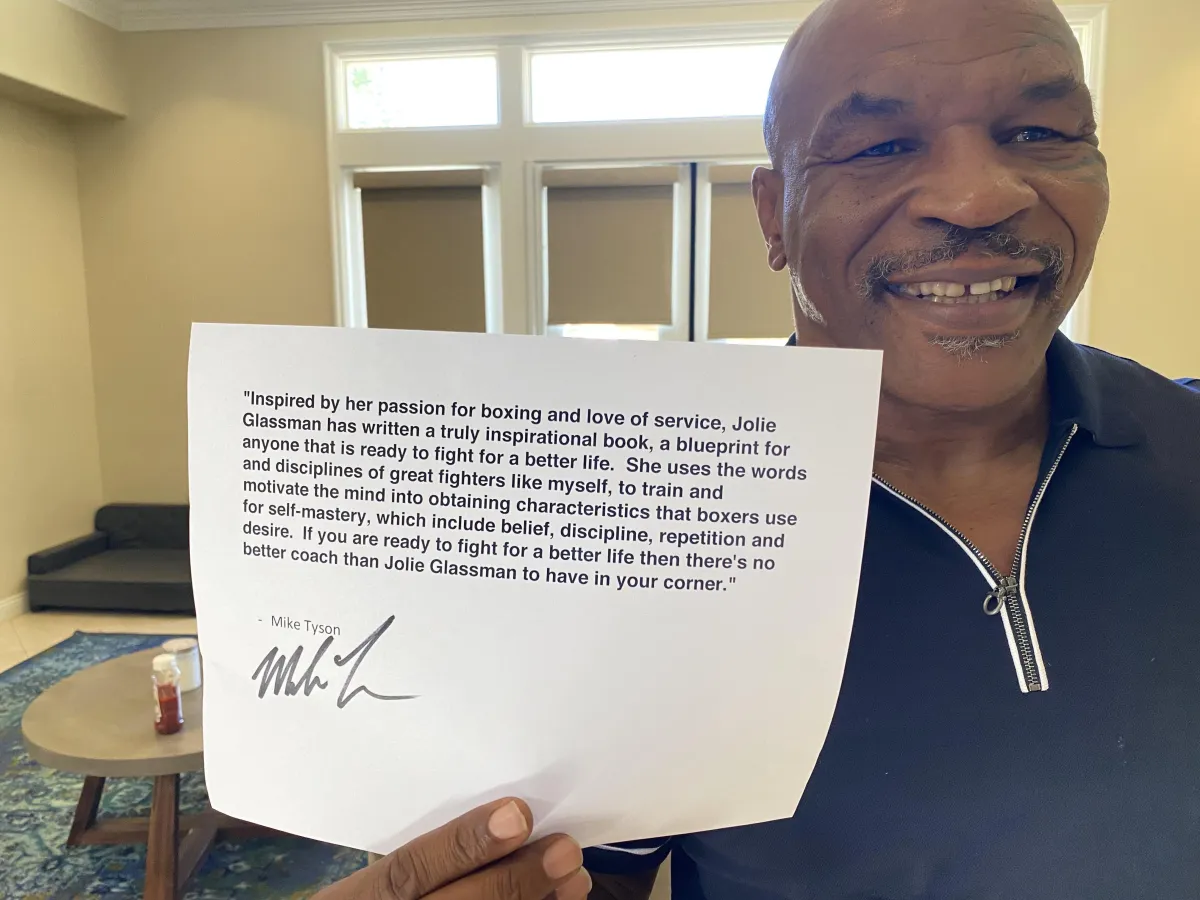 "Inspired by her passion for boxing and love of service, Jolie
Glassman has written a truly inspirational book, a blueprint for
anyone that is ready to fight for a better life.  She uses the words
and disciplines of great fighters like myself, to train and
motivate the mind into obtaining characteristics that boxers use
for self-mastery, which include belief, discipline, repetition and
desire.  If you are ready to fight for a better life then there's no
better coach than Jolie Glassman to have in your corner."
- Mike Tyson